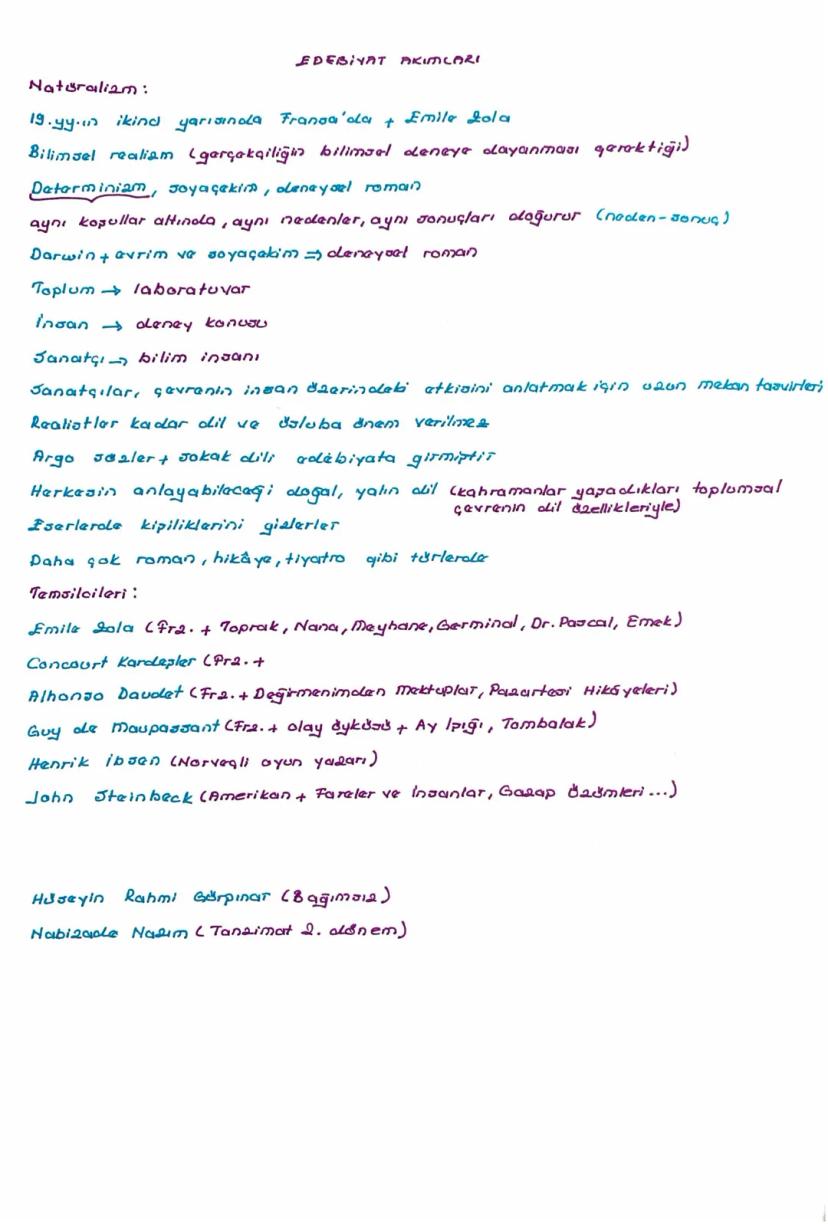 EDEBİYAT AKIMLARI
Natüralizm:
19.yy.ın ikinci yarısında Fransa'da + Emile Zola
Bilimsel realizm (gerçekçiliğin bilimsel deneye dayanması gerektiği)
Determinizm, soyaçekim, deneysel roman
aynı koşullar altında, aynı nedenler, aynı sonuçları doğurur (neden-sonuç)
Darwin + evrim ve soyaçekim => deneysel roman
Toplum → laboratuvar
İnsan → deney konusu
Sanatçı → bilim insanı
Sanatçılar, çevrenin insan üzerindeki etkisini anlatmak için uzun mekan tasvirleri
Realistler kadar dil ve üsluba önem verilmez
Argo sözler + sokak dili edebiyata girmiştir
Herkesin anlayabileceği doğal, yalın dil (kahramanlar yaşadıkları toplumsal
çevrenin dil özellikleriyle)
Eserlerde kişiliklerini gizlerler
Daha çok roman, hikâye, tiyatro gibi türlerde
Temsilcileri:
Emile Zola (Frz. + Toprak, Nana, Meyhane, Germinal, Dr. Pascal, Emek)
Concourt Kardeşler (Frz. +
Alhonso Daudet (Frz. + Değirmenimden Mektuplar, Pazartesi Hikâyeleri)
Guy de Maupassant (Frz. + olay öyküsü + Ay Işığı, Tombalak)
Henrik İbsen (Norveçli oyun yazarı)
John Steinbeck (Amerikan + Fareler ve İnsanlar, Gazap Üzümleri...)
Hüseyin Rahmi Gürpınar (Bağımsız)
Nabizade Nazım (Tanzimat 2. dönem)